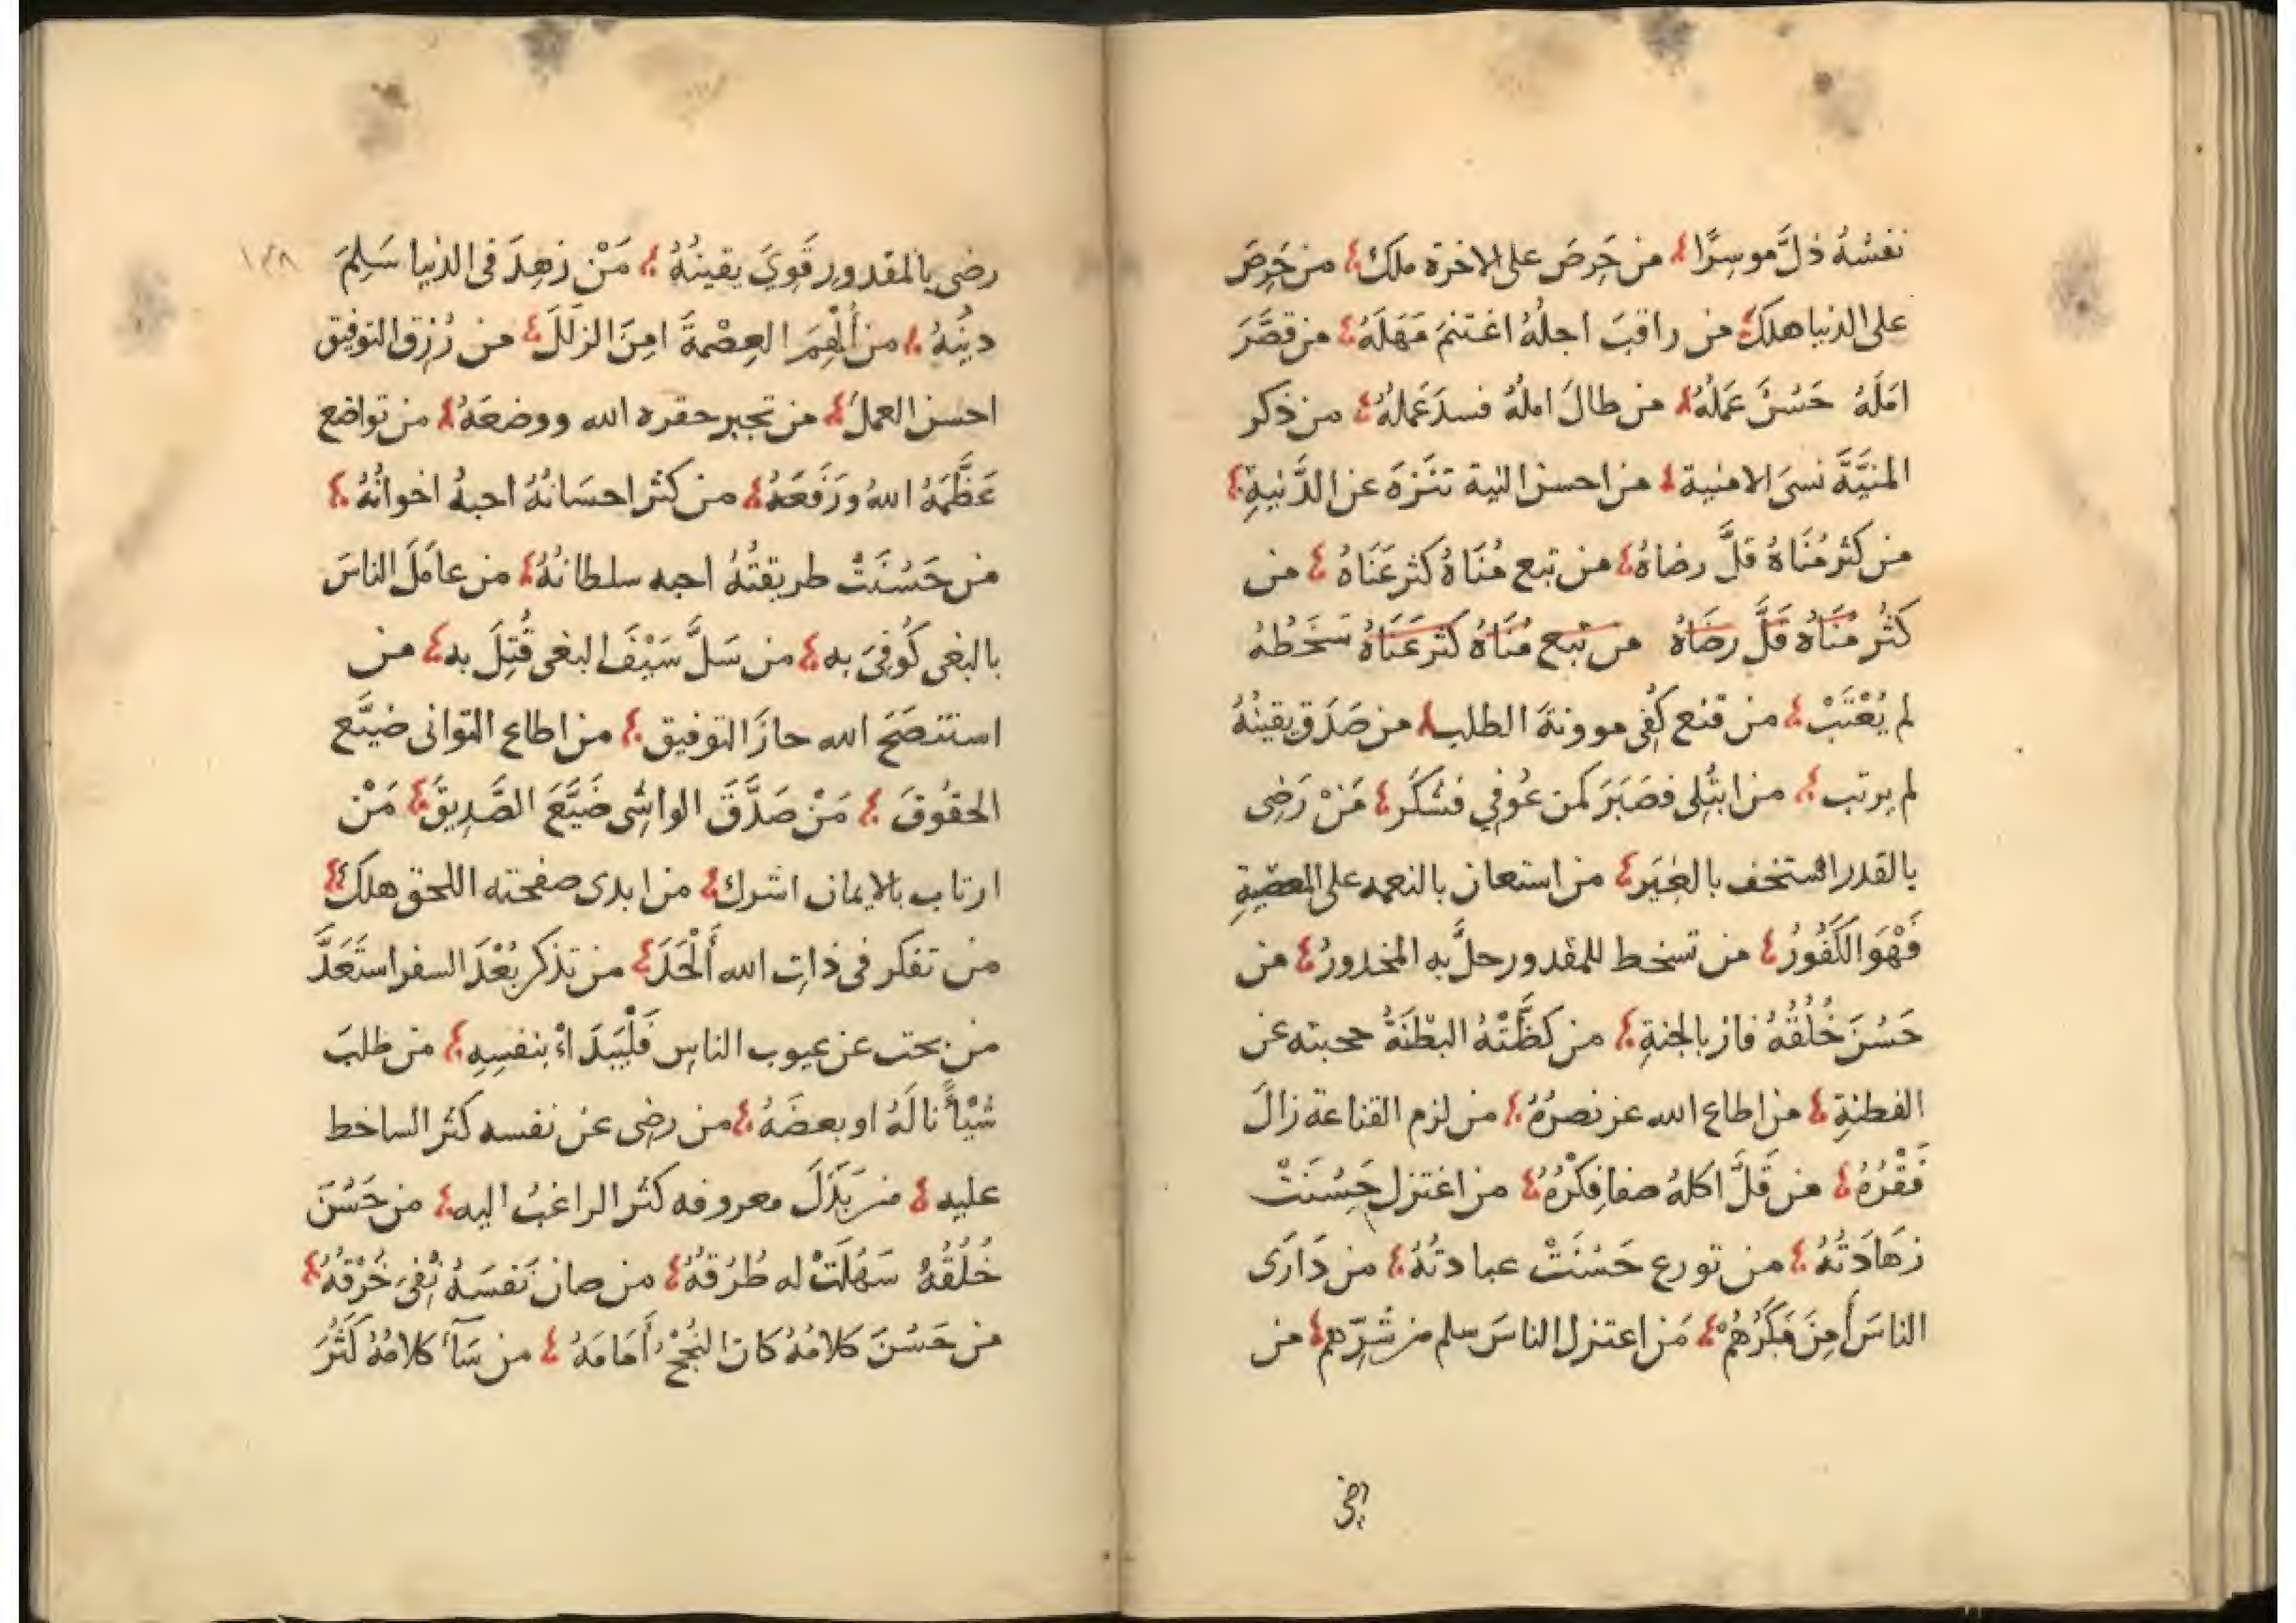 نفسُهُ ذلَّ موسِرًا من حَرِصَ على الاخرة ملك من حَرِصَ
على الدنيا هلك من راقبَ اجلُهُ اغتنمَ مَهَلَهُ من قصَّرَ
امَلَهُ حَسُنَ عَمَلُهُ من طالَ املُهُ فسدَ عَملهُ من ذكر
المنيَّةَ نسىَ الامنية من احسن النية تنَزهَ عن الدَّنيةِ
من كثر مُنَاهُ قلَّ رضاهُ من تبع مُنَاهُ كثر عَنَاهُ من
كثُر مُنَاهُ قَلَّ رضَاهُ من تبع مُنَاهُ كثر عَنَاهُ سَخَطُهُ
لم يُعْتَبْ من قنع كُفِى موونةَ الطلب من صَدَق يقينُهُ
لم يرتب من ابتُلِى فصَبَرَ كمن عُوفِي فشكَر مَنْ رَضِى
بالقدر استخف بالغِيَر من استعان بالنعمه على المعصيةِ
فَهْوَ الكَفُورُ من تسخط للمقدور حلَّ به المحذورُ من
حَسُنَ خُلُقُهُ فاز بالجنةِ من كظَّتْهُ البطْنَةُ حجبته عن
الفطنةِ من اطاع الله عز نصرُهُ من لزم القناعة زالَ
فَقْرُهُ من قَلَّ اكلهُ صفا فِكْرُهُ من اعتزل حَسُنَتْ
زهَادَتُهُ من تورع حَسُنَتْ عبادتُهُ من دَارَى
الناسَ أمِنَ مَكْرَهُمْ مَن اعتزل الناسَ سلم من شَرِّهم من
رضى بالمقدور قَوِىَ يقينُهُ مَنْ زهِدَ فى الدنيا سَلِمَ ١٢٨
دينُهُ من أُلْهِمَ العِصْمةَ امِنَ الزلَلَ من رُزِق التوفيق
احسن العملَ من تجبر حقره الله ووضعَهُ من تواضع
عَظَّمَهُ اللهُ ورَفَعَهُ من كثر احسَانُهُ احبهُ اخوانُهُ
من حَسُنَتْ طريقتُهُ احبه سلطانُهُ من عامَلَ الناسَ
بالبغى كُوفِىَ به من سَلَّ سَيْفَ البغى قُتِلَ به من
استنصَحَ الله حازَ التوفيق من اطاع التوانى ضيَّع
الحقُوقَ مَنْ صَدَّقَ الواشِى ضَيَّعَ الصَّدِيقَ مَنْ
ارتاب بالايمان اشرك من ابدى صفحته للحق هلك
من تفكر فى ذاتِ الله أَلْحَدَ من تذكر بُعْدَ السفر استَعَدَّ
من بحث عن عيوب الناسِ فَلْيَبَدَاءْ بنفسِهِ من طلبَ
شيْأً نالَهُ او بعضَهُ من رضى عن نفسه كثر الساخط
عليه من بَذَلَ معروفه كثر الراغبُ اليه من حَسُنَ
خُلُقُهُ سَهُلَتْ له طُرُقهُ من صان نَفسَهُ
من حَسُنَ كلامُهُ كان النُجْحُ أمَامَهُ من سَآءَ كلامُهُ كَثُرَ